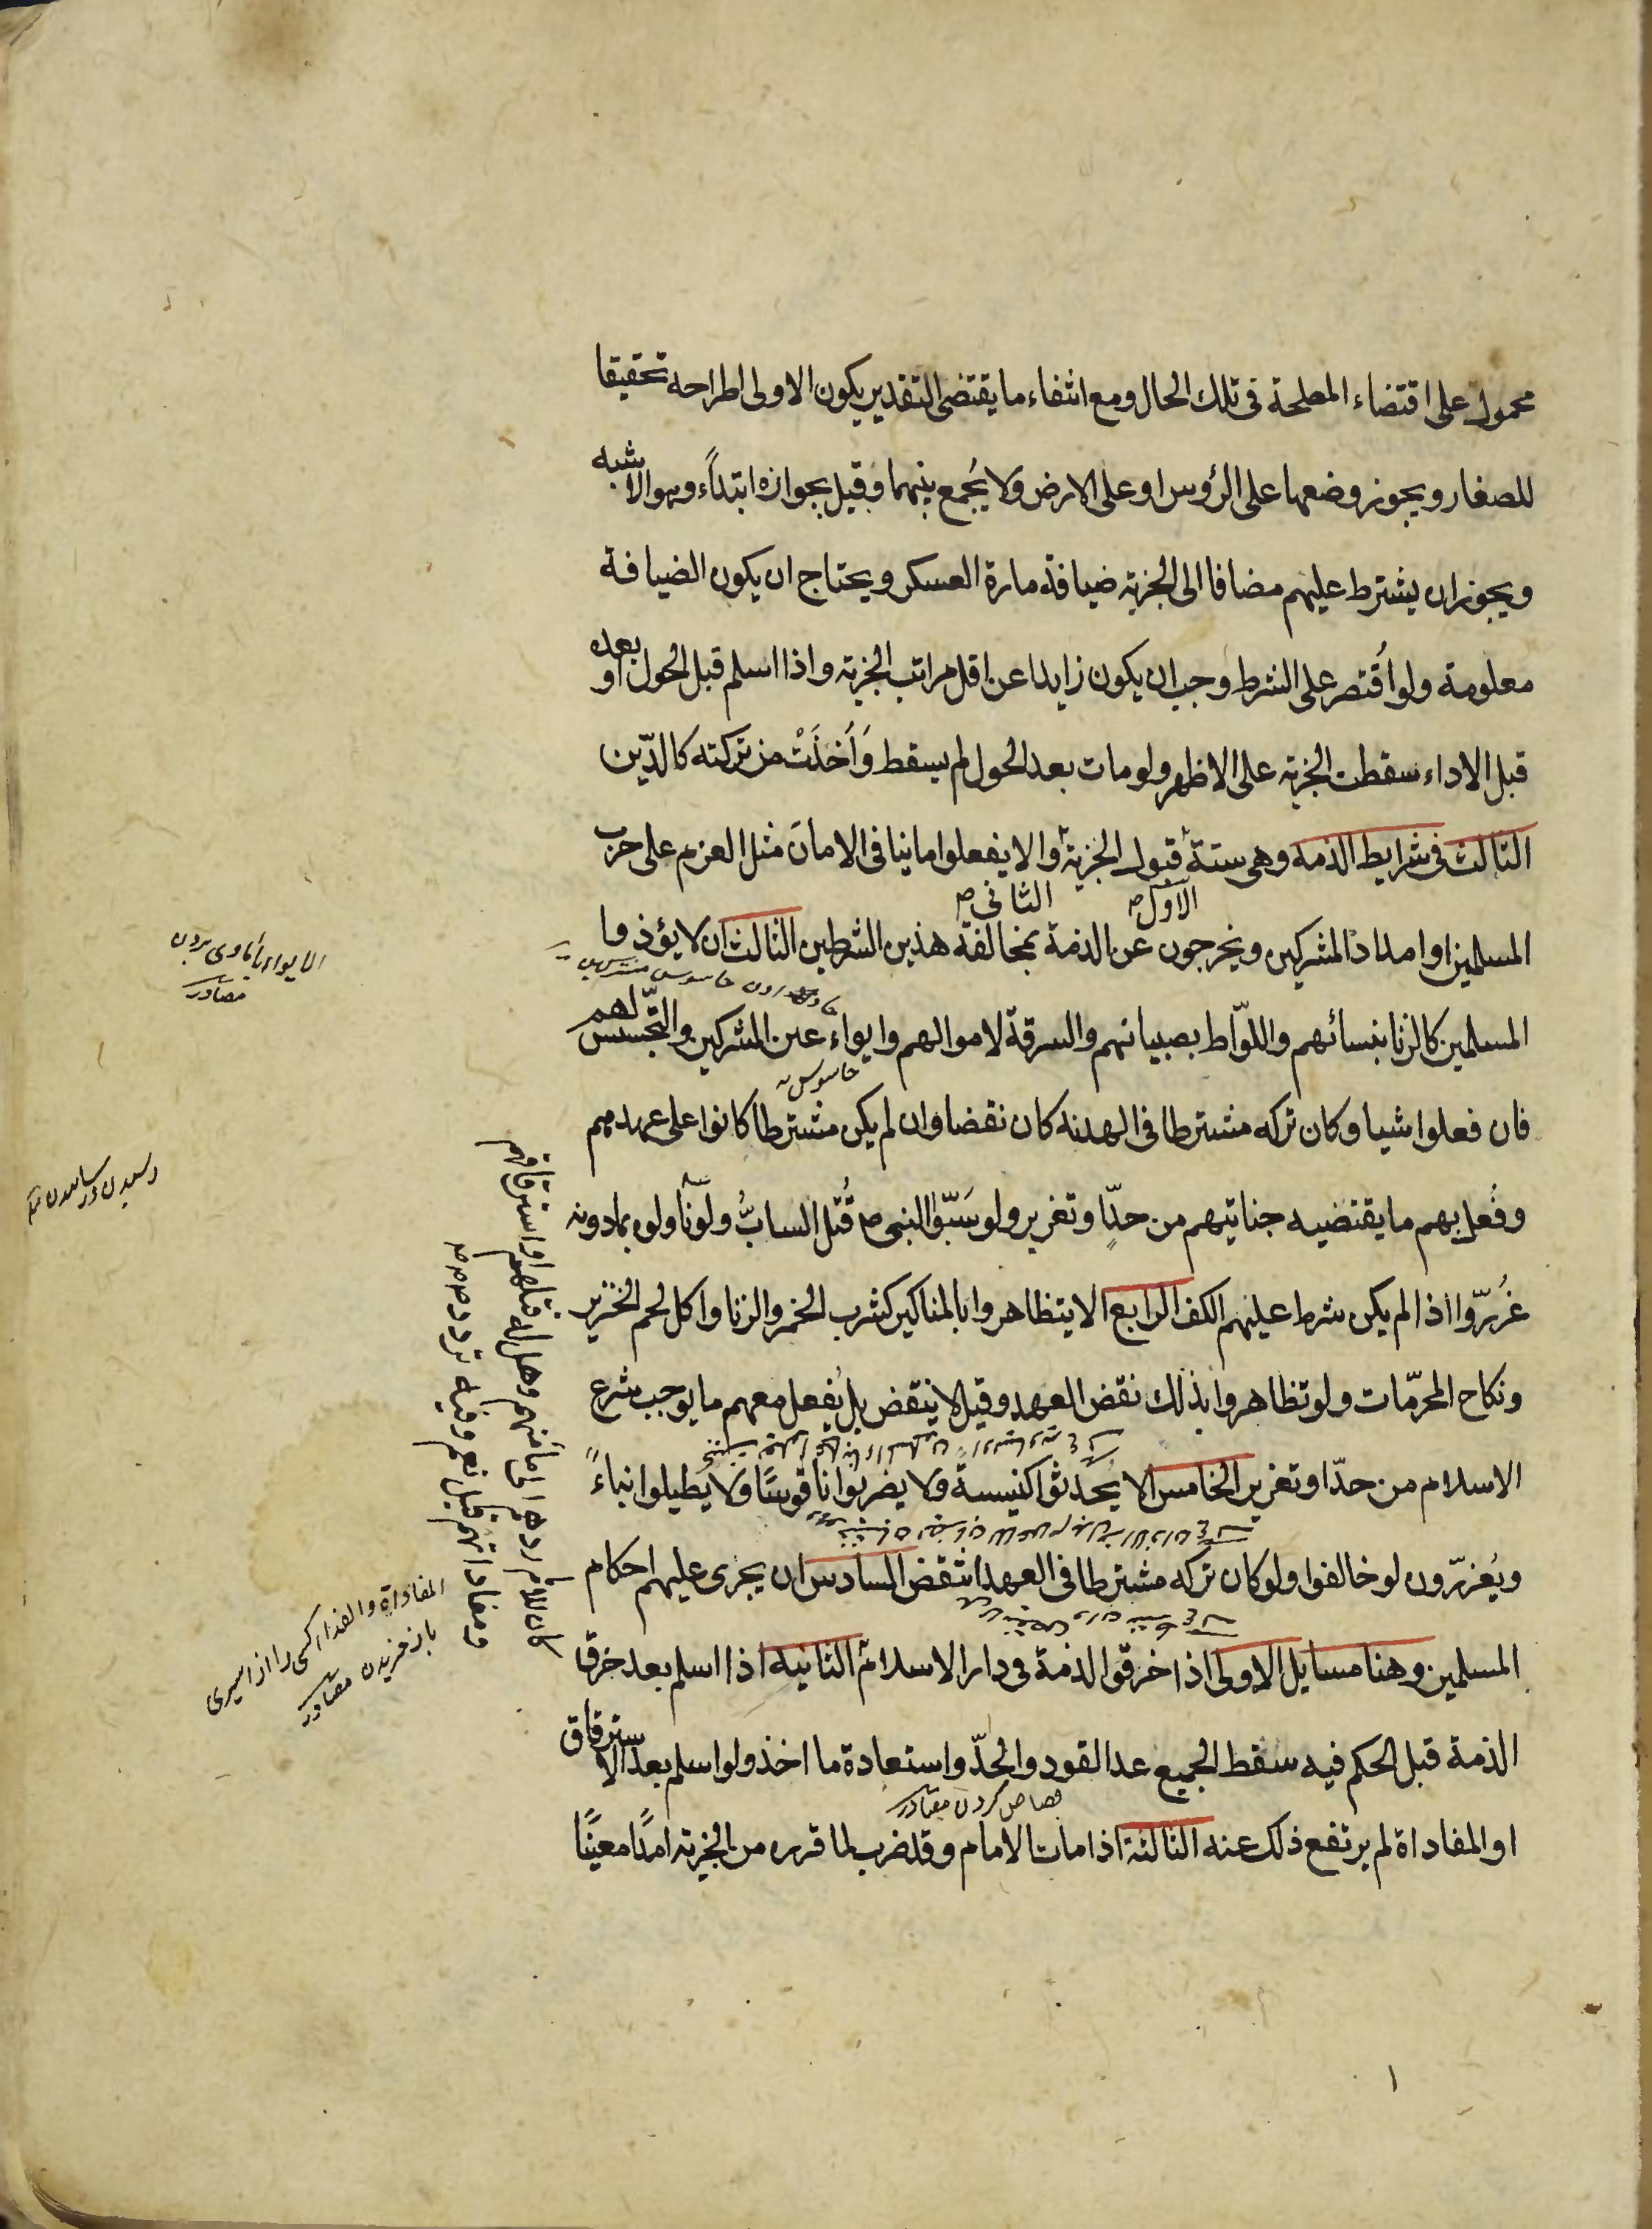 محمول على اقتضاء المصلحة فى تلك الحال ومع انتفاء ما يقتضى التقدير يكون الاولى اطراحه تحقيقا
للصغار ويجوز وضعها على الرؤس او على الارض ولا يُجمع بينهما وقيل بجوازه ابتداءً وهو الاشبه
ويجوز ان يشترط عليهم مضافا الى الجزية ضيافة مارة العسكر ويحتاج ان يكون الضيافة
معلومة ولو اُقتصر على الشرط وجب ان يكون زايدا عن اقل مراتب الجزية واذا اسلم قبل الحول او بعده
قبل الاداء سقطت الجزية على الاظهر ولو مات بعد الحول لم يسقط وَاُخذَتْ من تركته كالدّين
الثالث فى شرايط الذمه وهى ستة قبول الجزية والا يفعلوا ما ينافى الامان مثل العزم على حرب
الاول الثانى
المسلمين او امداد المشركين ويخرجون عن الذمة بمخالفة هذين الشرطين الثالث ان لا يؤذوا
المسلمين كالزنا بنسائهم واللوّاط بصبيانهم والسرقة لاموالهم وايواء عين المشركين والتجّسس لهم
جاسوس
فان فعلوا شيا وكان تركه مشترطا فى الهدنه كان نقضا وان لم يكن مشترطا كانوا على عهدهم
وفُعل بهم ما يقتضيه جنايتهم من حدّا وتعزير ولو سَبّوا النبى ص قُتل السابُّ ولو نالوه بمادونه
عُزرّوا اذا لم يكن شرط عليهم الكف الرابع الا يتظاهروا بالمناكير كشرب الخمر والزنا واكل لحم الخنزير
ونكاح المحرّمات ولو تظاهروا بذلك نقض العهد وقيل لا ينقض بل يُفعل معهم ما يوجب شرع
الاسلام من حدّا وتعزير الخامس الا يُحدثوا كنيسة ولا يضربوا ناقوسًا ولا يطيلوا بناءً
ويُعزرّون لو خالفوا ولو كان تركه مشترطا فى العهد انتقض السادس ان يجرى عليهم احكام
المسلمين وهنا مسايل الاولى اذا خرقوا الذمة فى دار الاسلام الثانيه اذا اسلم بعد خرق
الذمة قبل الحكم فيه سقط الجميع عدا القود والحدّ واستعادة ما اخذ ولو اسلم بعد الاسترقاق
قصاص كردن مصادر
او المفاداة لم يرتفع ذلك عنه الثالثة اذا مات الامام وقد ضرب لما قرره من الجزية امدًا معينًا
كان للامام ردهم الى مأمنهم وهل له قتلهم او استرقاقهم
ومفاداتهم قيل نعم وفيه تردد
مصادر
المفاداة والفداء كسى را از اسيرى
باز خريدن مصادر